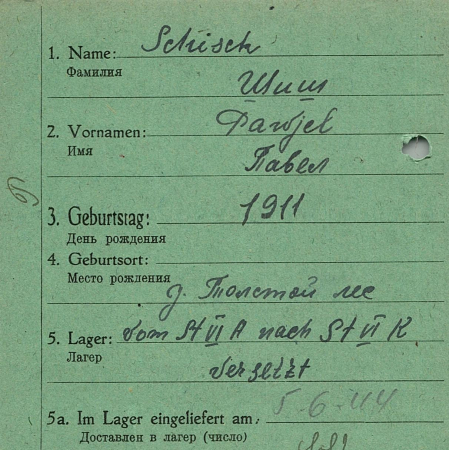 1. Name: Schisch
Фамилия
Шиш
2. Vornamen: Pawjel
Имя
Павел
3. Geburtstag: 1911
День рождения
4. Geburtsort:
Место рождения
д. Толстой лес
5. Lager: vom St VI A nach St VI K
Лагер
versetzt
5a. Im Lager eingeliefert am: 5-6-44
Доставлен в лагер (число)